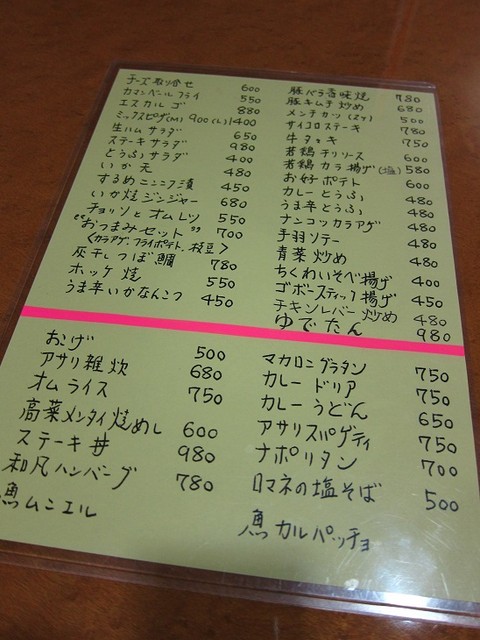 チーズ取り合せ 600
カマンベールフライ 550
エスカルゴ 880
ミックスピザ(M) 900 (L)1400
生ハムサラダ 650
ステーキサラダ 980
とうふサラダ 400
いか天 480
するめニンニク漬 450
いか焼ジンジャー 680
チョリソとオムレツ 550
"おつまみセット" 700
〈カラアゲ、フライポテト、枝豆〉
灰干しつぼ鯛 780
ホッケ焼 550
うま辛いかなんこつ 450
豚バラ香味焼 780
豚キムチ炒め 680
メンチカツ(2ヶ) 500
サイコロステーキ 780
牛タタキ 750
若鶏チリソース 600
若鶏カラ揚げ(塩) 580
お好ポテト 600
カレーとうふ 480
うま辛とうふ 480
ナンコツカラアゲ 480
手羽ソテー 480
青菜炒め 480
ちくわいそべ揚げ 400
ゴボースティック揚げ 450
チキンレバー炒め 480
ゆでたん 980
おこげ 500
アサリ雑炊 680
オムライス 750
高菜メンタイ焼めし 600
ステーキ丼 980
和風ハンバーグ 780
魚ムニエル
マカロニグラタン 750
カレードリア 750
カレーうどん 650
アサリスパゲティ 750
ナポリタン 700
ロマネの塩そば 500
魚カルパッチョ